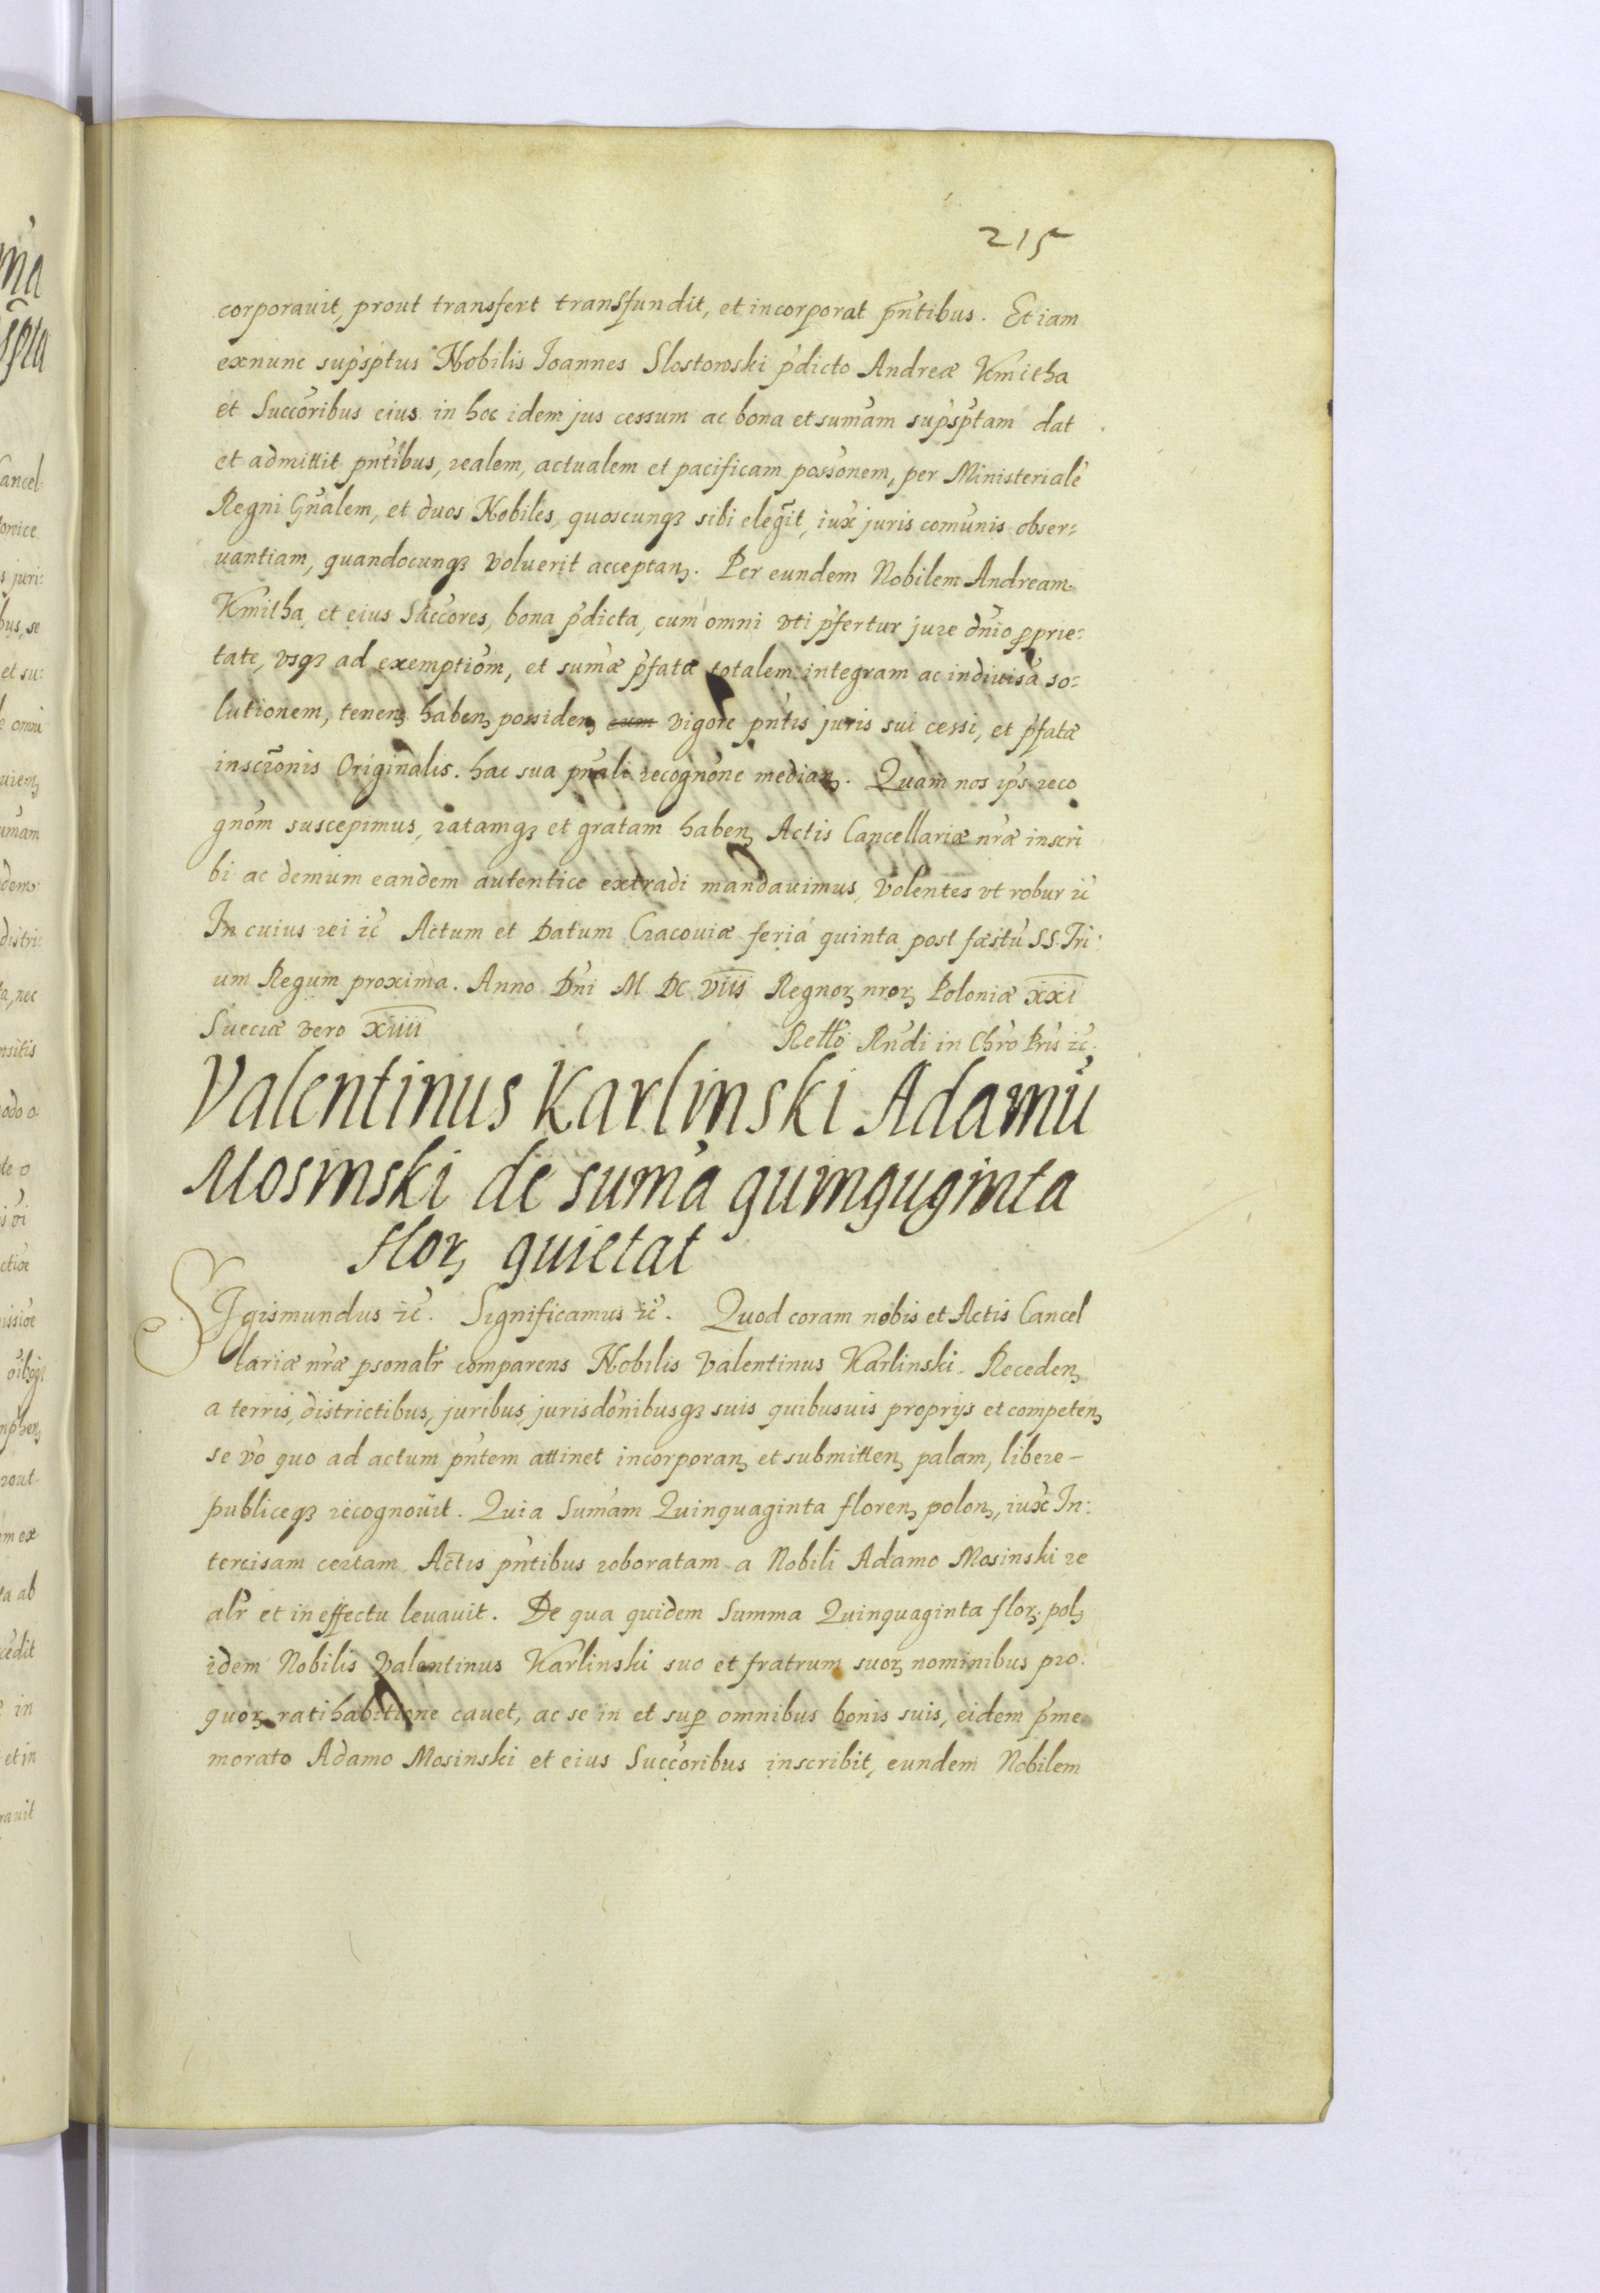 215
corporauit, prout transfert transfundit, et incorporat pn̄tibus. Et iam
exnunc supsptus Nobilis Joannes Slostowski pdicto Andreæ Kmitha
et Succoribus eius in hoc idem jus cessum ac bona et sumam supsptam dat
et admittit pntibus, realem, actualem et pacificam possonem, per Ministeriale
Regni Gnalem, et duos Nobiles, quoscunqꝫ sibi elegit, iux juris comunis obser:
uantiam, quandocunqꝫ voluerit acceptanꝫ. Per eundem Nobilem Andream
Kmitha, et eius Succores, bona pdicta, cum omni vti pfertur jure dnio pprie:
tate, vsqꝫ ad exemptiom, et sumæ pfatæ totalem integram ac indiuisa so:
lutionem, tenenꝫ habenꝫ possidenꝫ cum vigore pntis juris sui cessi, et pfatæ
inscronis Originalis. hac sua pnali recognone medianꝫ. Quam nos ips reco
gnom suscepimus, ratamqꝫ et gratam habenꝫ Actis Cancellariæ nræ inscri
bi ac demum eandem autentice extradi mandauimus, Volentes vt robur ꝛc
In cuius rei ꝛc Actum et Datum Cracouiæ feria quinta post fæstu S.S. Tri
um Regum proxima. Anno Dni M DC VIII Regnoꝝ nroꝝ Poloniæ XXI
Sueciæ vero XIIII Rello Rndi in Chro Pris ꝛc.
Valentinus Karlinski Adamu
Mosinski de suma quinquginta
floꝝ quietat
SIgismundus ꝛc. Significamus ꝛc. Quod coram nobis et Actis Cancel
lariæ nræ psonalr comparens Nobilis Valentinus Karlinski. Recedenꝫ
a terris, districtibus, juribus jurisdonibusqꝫ suis quibusuis proprijs et competenꝫ
se vo quo ad actum pntem attinet incorporanꝫ et submittenꝫ palam, libere
publiceqꝫ recognouit. Quia Sumam Quinquaginta florenꝫ polonꝫ, iux In:
tercisam certam Actis pntibus roboratam a Nobili Adamo Mosinski re
alr et in effectu leuauit. De qua quidem Summa Quinquaginta floꝝ polꝫ
idem Nobilis Valentinus Karlinski suo et fratrum suoꝝ nominibus pro
quoꝝ ratihabitione cauet, ac se in et sup omnibus bonis suis, eidem pme
morato Adamo Mosinski et eius Succoribus inscribit, eundem Nobilem